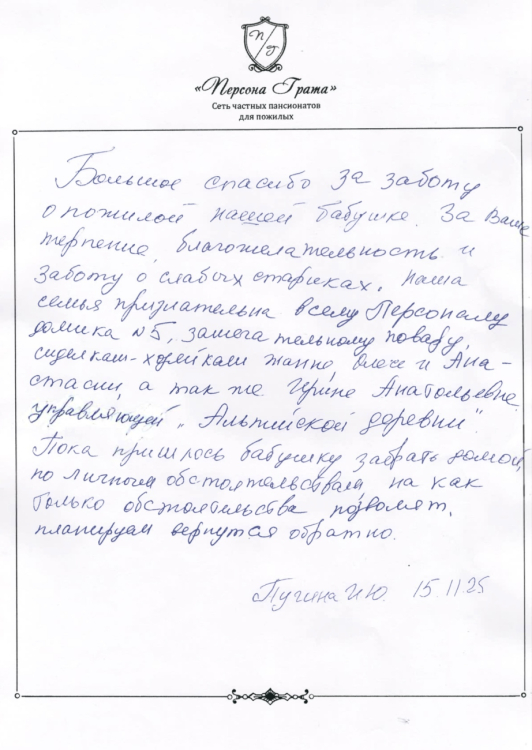 П Г
«Персона Грата»
Сеть частных пансионатов
для пожилых
Большое спасибо за заботу
о пожилой нашей бабушке. За Ваше
терпение, благожелательность и
заботу о слабых стариках. Наша
семья признательна всему Персоналу
домика №5, замечательному повару,
сиделкам-хозяйкам Жанне, Олече и Ана-
стасии, а так же Ирине Анатольевне
управляющей "Альпийской деревни"
Пока пришлось бабушку забрать домой,
по личным обстоятельствам, но как
только обстоятельства позволят,
планируем вернутся обратно.
Пугина И.Ю. 15.11.25